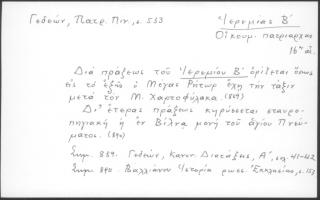 Γεδεών, Πατρ. Πιν., σ. 533
Ἱερεμίας Β΄
Οἰκουμ. πατριάρχης
16ος αἰ.
Διὰ πράξεως τοῦ Ἱερεμίου Β΄ ὁρίζεται ὅπως
εἰς τὸ ἑξῆς ὁ Μέγας Ρήτωρ ἔχῃ τὴν τάξιν
μετὰ τὸν Μ. Χαρτοφύλακα. (839)
Δι' ἑτέρας πράξεως κηρύσσεται σταυρο-
πηγιακὴ ἡ ἐν Βίλνᾳ μονὴ τοῦ ἁγίου Πνεύ-
ματος. (840)
Σημ. 839. Γεδεών, Κανον. Διατάξεις, Α΄, σελ. 41-42.
Σημ. 840 Βαλλιάνου Ἱστορία ρωσ. Ἐκκλησίας, σ. 153